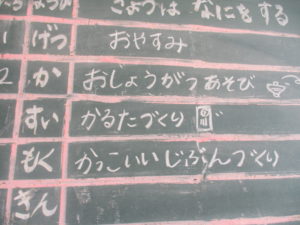 ようび きょうは なにをする
1 げつ おやすみ
2 か おしょうがつあそび
すい かるたづくり
もく かっこいいじぶんづくり
きん